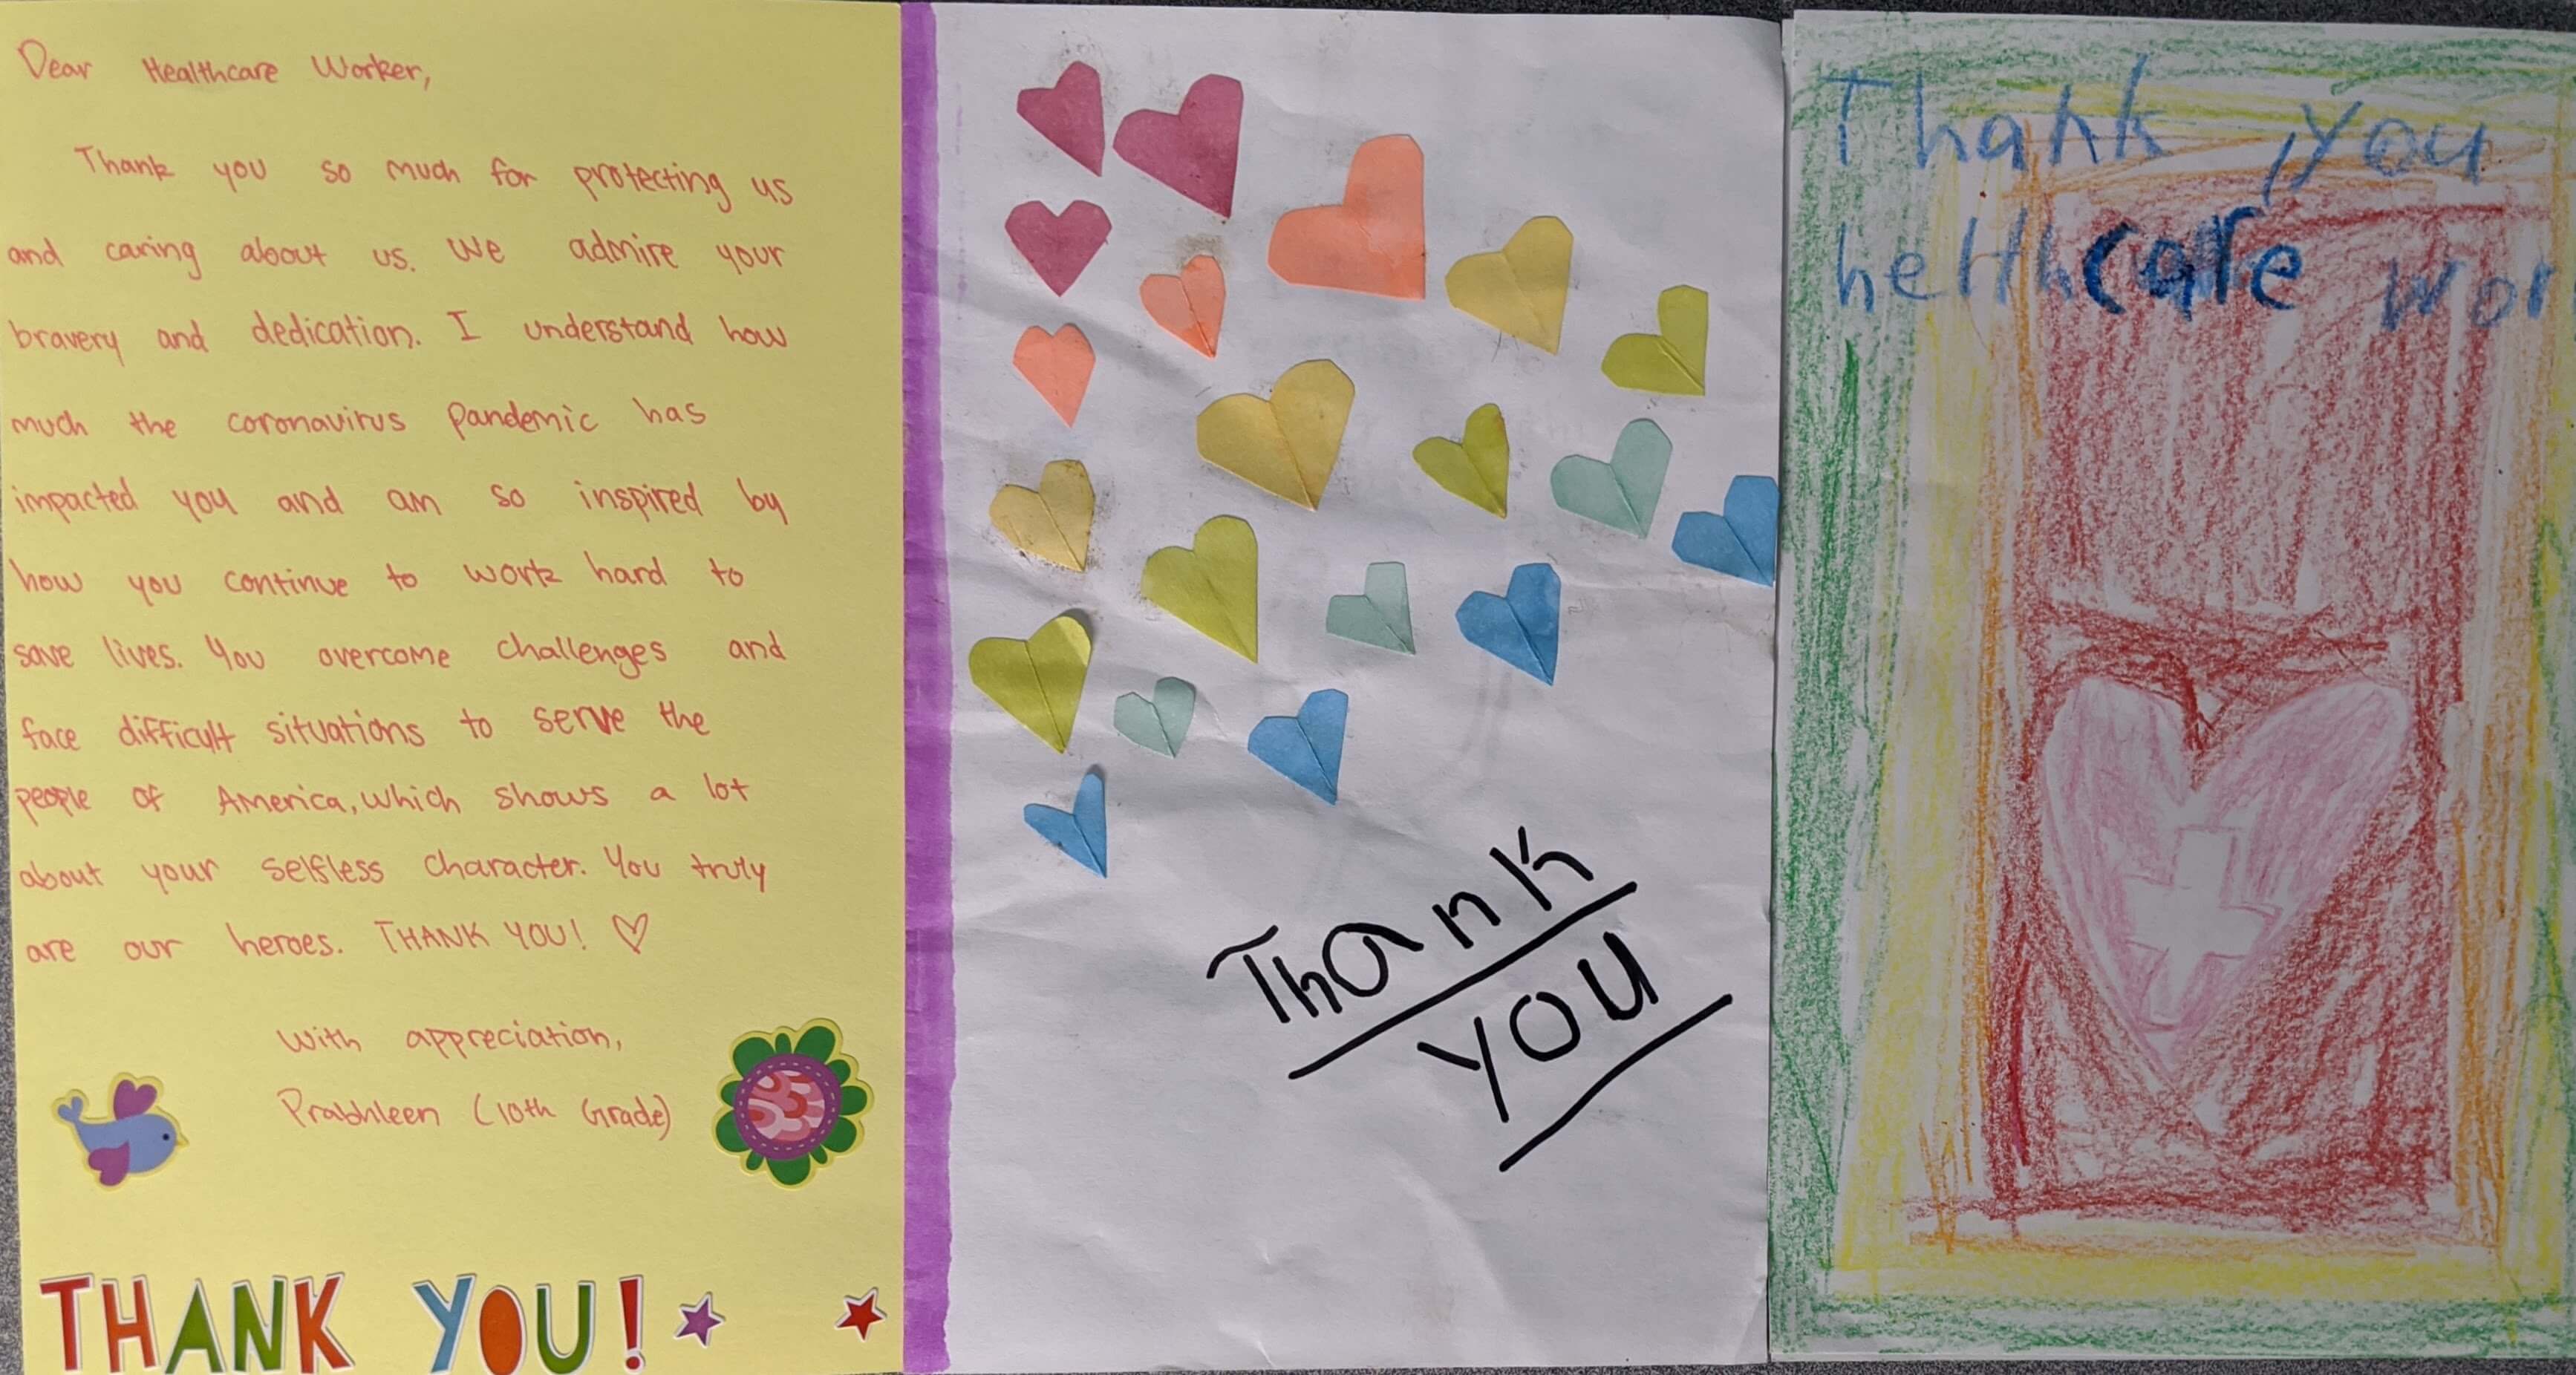 Dear Healthcare Worker,
Thank you so much for protecting us
and caring about us. We admire your
bravery and dedication. I understand how
much the coronavirus pandemic has
impacted you and am so inspired by
how you continue to work hard to
save lives. You overcome challenges and
face difficult situations to serve the
people of America, which shows a lot
about your selfless character. You truly
are our heroes. THANK YOU! ♡
With appreciation,
Prabhleen (10th Grade)
THANK YOU!
Thank
you
Thank you
helthcare wor